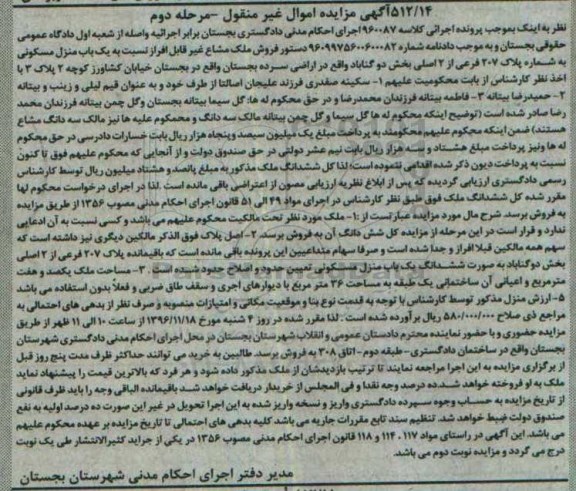 ۵۱۲/۱۴آگهی مزایده اموال غیر منقول -مرحله دوم
نظر به اینک بموجب پرونده اجرائی کلاسه ۹۶۰۰۸۷اجرای احکام مدنی دادگستری بجستان برابر اجرائیه واصله از شعبه اول دادگاه عمومی
حقوقی بجستان و به موجب دادنامه شماره ۹۶۰۹۹۷۵۶۰۶۰۰۰۸۲ دستور فروش ملک مشاع غیر قابل افراز نسبت به یک باب منزل مسکونی
به شماره پلاک ۲۰۷ فرعی از ۲ اصلی بخش دو گناباد واقع در اراضی سرده بجستان واقع در بجستان خیابان کشاورز کوچه ۲ پلاک ۳ با
اخذ نظر کارشناس از بابت محکومیت علیهم ۱- سکینه صفدری فرزند علیجان اصالتا از طرف خود و به عنوان قیم لیلی و زینب و بیتانه
۲- حمیدرضا بیتانه ۳- فاطمه بیتانه فرزندان محمدرضا و در حق محکوم له ها: گل سیما بیتانه بجستان وگل چمن بیتانه فرزندان محمد
رضا صادر شده است (توضیح اینکه محکوم له ها گل سیما و گل چمن بیتانه مالک سه دانگ و محمکوم علیه ها نیز مالک سه دانگ مشاع
هستند) ضمن اینکه محکوم علیهم محکومند به پرداخت مبلغ یک میلیون سیصد وپنجاه هزار ریال بابت خسارات دادرسی در حق محکوم
له ها ونیز پرداخت مبلغ هشتاد و سه هزار ریال بابت نیم عشر دولتی در حق صندوق دولت و از آنجایی که محکوم علیهم فوق تا کنون
نسبت به پرداخت دیون ذکر شده اقدامی ننموده است؛ لذا کل ششدانگ ملک مذکور به مبلغ پانصد و هشتاد میلیون ریال توسط کارشناس
رسمی دادگستری ارزیابی گردیده که پس از ابلاغ نظریه ارزیابی مصون از اعتراضی باقی مانده است .لذا در اجرای درخواست محکوم لها
مقرر شده کل ششدانگ ملک فوق طبق نظر کارشناس در اجرای مواد ۴۹ الی ۵۱ قانون اجرای احکام مدنی مصوب ۱۳۵۶ از طریق مزایده
به فروش برسد. شرح مال مورد مزایده عبارتست از :۱- ملک مورد نظر تحت مالکیت محکوم علیهم می باشد و کسی نسبت به آن ادعایی
ندارد و قرار است در این مرحله از مزایده کل شش دانگ آن به فروش برسد. ۲- اصل پلاک فوق الذکر مالکین دیگری نیز داشته است که
سهم همه مالکین قبلا افراز و جدا شده است و صرفا سهام متداعیین این پرونده باقی مانده است که باقیمانده پلاک ۲۰۷ فرعی از ۲ اصلی
بخش دوگناباد به صورت ششدانگ یک باب منزل مسکونی تعیین حدود و اصلاح حدود شده است. ۳- مساحت ملک یکصد و هفت
مترمربع و اعیانی آن ساختمانی یک طبقه به مساحت ۳۶ متر مربع با دیوارهای آجری و سقف طاق ضربی و فعلاً بدون استفاده می باشد
۵- ارزش منزل مذکور توسط کارشناس با توجه به قدمت نوع بنا و موقعیت مکانی و امتیازات منصوبه و صرف نظر از بدهی های احتمالی به
مراجع ذی صلاح ۵۸۰/۰۰۰/۰۰۰ ریال برآورده شده است: لذا مقرر شده در روز ۴ شنبه مورخ ۱۳۹۶/۱۱/۱۸ از ساعت ۱۰ الی ۱۱ ظهر از طریق
مزایده حضوری و با حضور نماینده محترم دادستان عمومی و انقلاب شهرستان بجستان در محل اجرای احکام مدنی دادگستری شهرستان
بجستان واقع در ساختمان دادگستری- طبقه دوم-اتاق ۳۰۸ به فروش برسد. طالبین به خرید می توانند حداکثر ظرف مدت پنج روز قبل
از برگزاری مزایده به این اجرا مراجعه نمایند تا ترتیب بازدیدشان از ملک مذکور داده شود و هر فرد که بالاترین قیمت را پیشنهاد نماید
ملک به او فروخته خواهد شد.ده درصد وجه نقدا و فی المجلس از خریدار دریافت خواهد شد باقیمانده الباقی وجه را باید ظرف قانونی
از تاریخ مزایده به حساب وجوه سپرده دادگستری واریز و نسخه واریز شده به این اجرا تحویل در غیر این صورت ده درصد اولیه به نفع
صندوق دولت ضبط خواهد شد. تنظیم سند تابع مقررات جاریه می باشد کلیه بدهی های احتمالی تا تاریخ مزایده بر عهده محکوم علیهم
می باشد. این آگهی در راستای مواد ۱۱۷، ۱۱۴ و ۱۱۸ قانون اجرای احکام مدنی مصوب ۱۳۵۶ در یکی از جراید کثیرالانتشار طی یک نوبت
درج می گردد و مزایده نوبت دوم می باشد.
مدیر دفتر اجرای احکام مدنی شهرستان بجستان